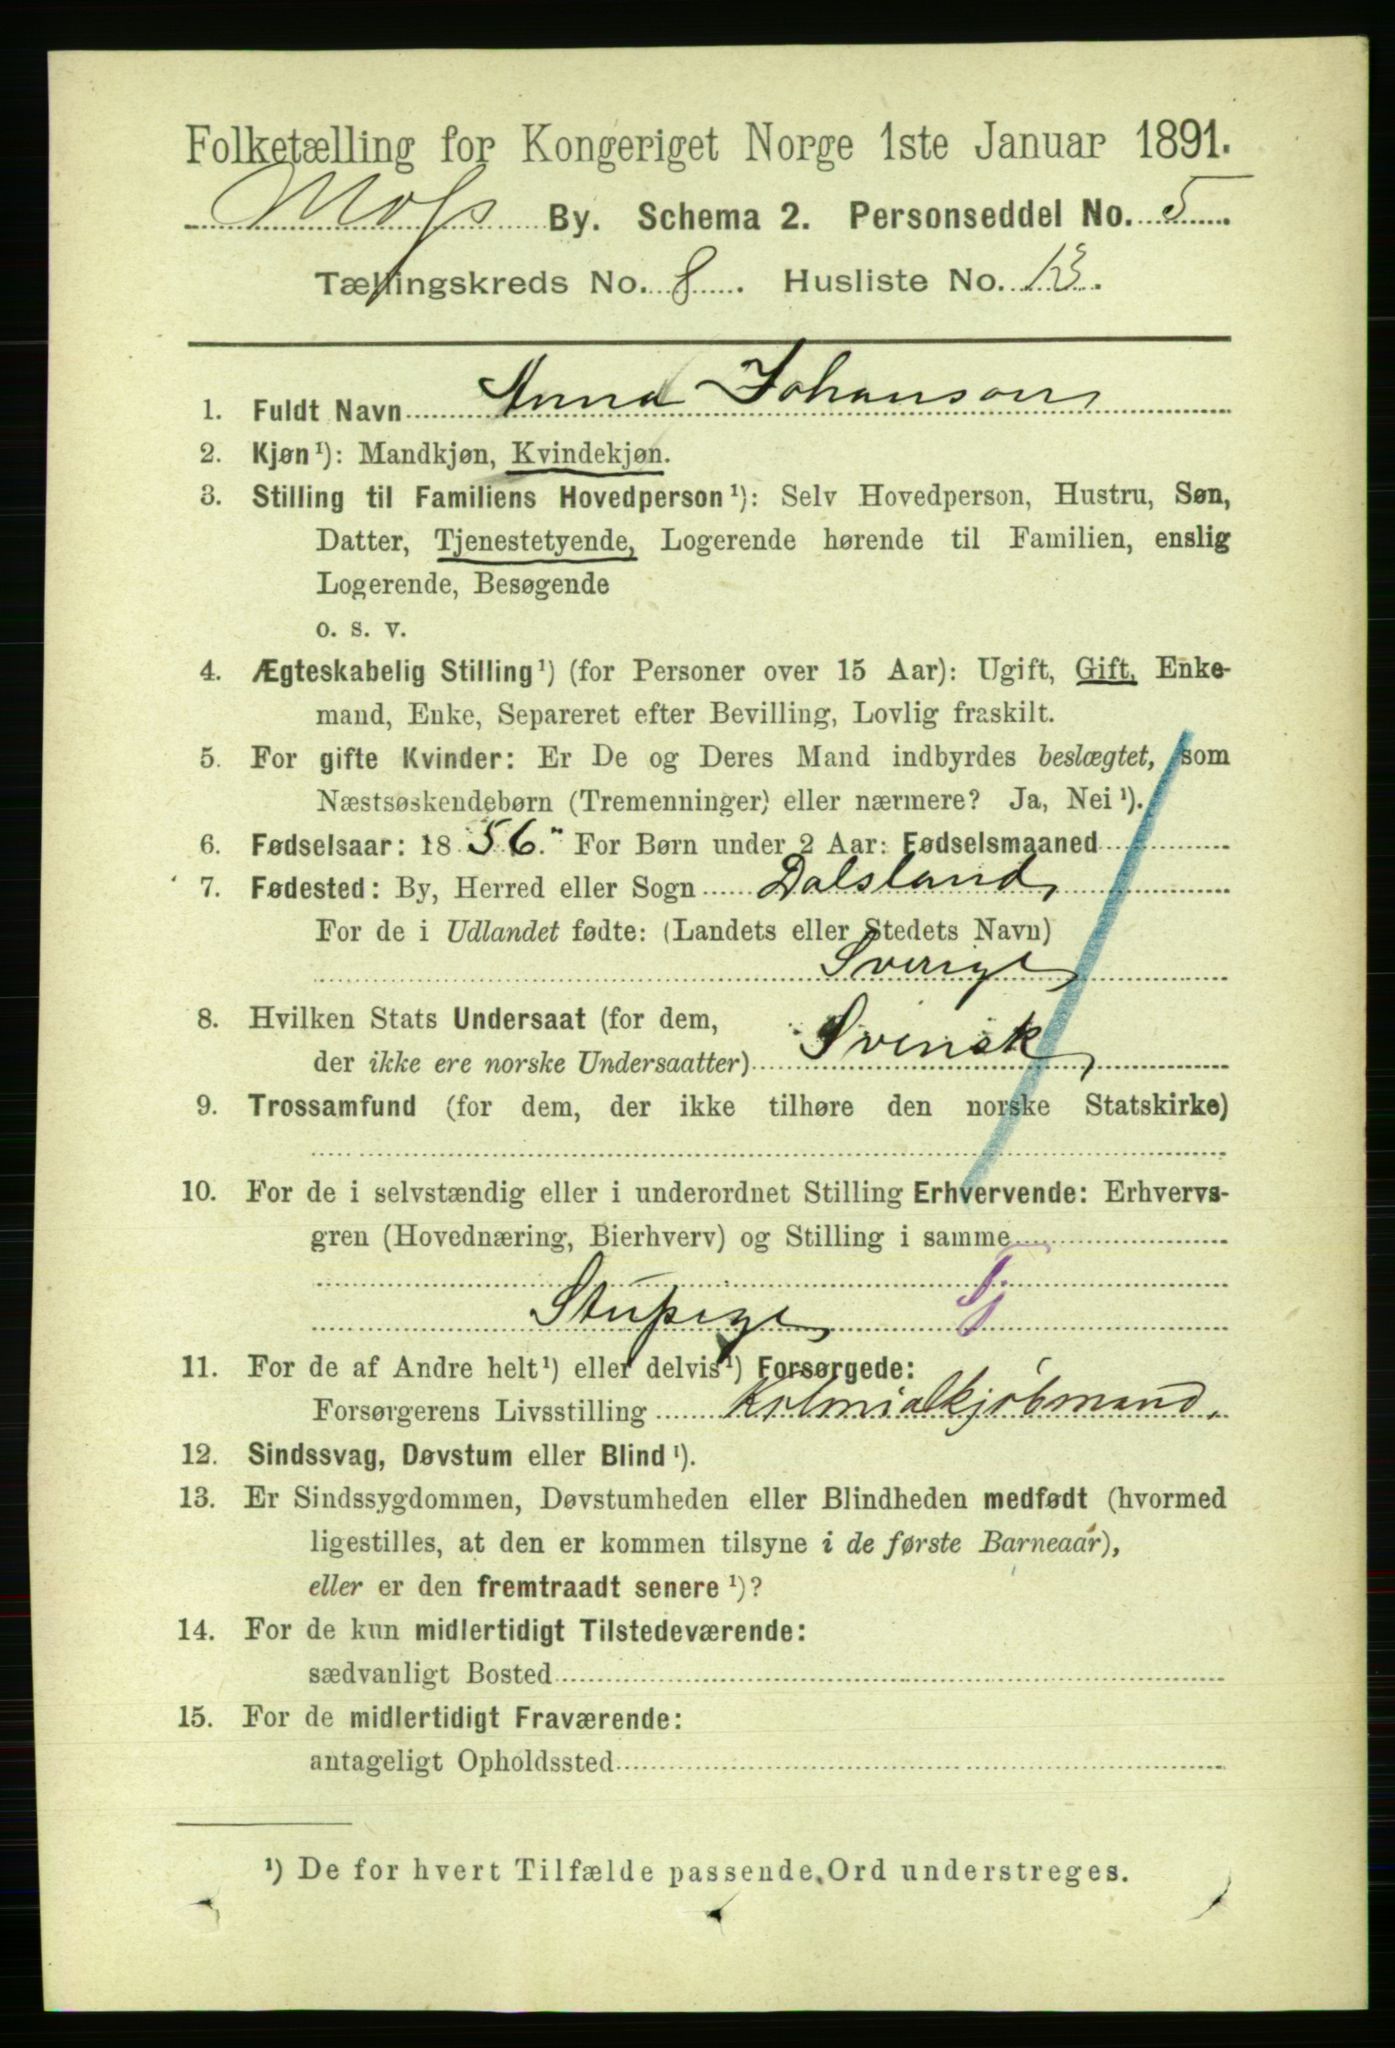 Folketælling for Kongeriget Norge 1ste Januar 1891.
Moss By. Schema 2. Personseddel No. 5
Tællingskreds No. 8. Husliste No. 13.
1. Fuldt Navn Anna Johanson
2. Kjøn¹): Mandkjøn, Kvindekjøn.
3. Stilling til Familiens Hovedperson¹): Selv Hovedperson, Hustru, Søn,
Datter, Tjenestetyende, Logerende hørende til Familien, enslig
Logerende, Besøgende
o. s. v.
4. Ægteskabelig Stilling¹) (for Personer over 15 Aar): Ugift, Gift, Enke-
mand, Enke, Separeret efter Bevilling, Lovlig fraskilt.
5. For gifte Kvinder: Er De og Deres Mand indbyrdes beslægtet, som
Næstsøskendebørn (Tremenninger) eller nærmere? Ja, Nei¹).
6. Fødselsaar: 1856. For Børn under 2 Aar: Fødselsmaaned
7. Fødested: By, Herred eller Sogn Dalsland,
For de i Udlandet fødte: (Landets eller Stedets Navn)
Sverige
8. Hvilken Stats Undersaat (for dem,
der ikke ere norske Undersaatter) Svensk
9. Trossamfund (for dem, der ikke tilhøre den norske Statskirke)
10. For de i selvstændig eller i underordnet Stilling Erhvervende: Erhvervs-
gren (Hovednæring, Bierhverv) og Stilling i samme
Stupige
11. For de af Andre helt¹) eller delvis¹) Forsørgede:
Forsørgerens Livsstilling Kolonialkjöbmand.
12. Sindssvag, Døvstum eller Blind¹).
13. Er Sindssygdommen, Døvstumheden eller Blindheden medfødt (hvormed
ligestilles, at den er kommen tilsyne i de første Barneaar),
eller er den fremtraadt senere¹)?
14. For de kun midlertidigt Tilstedeværende:
sædvanligt Bosted
15. For de midlertidigt Fraværende:
antageligt Opholdssted
¹) De for hvert Tilfælde passende Ord understreges.